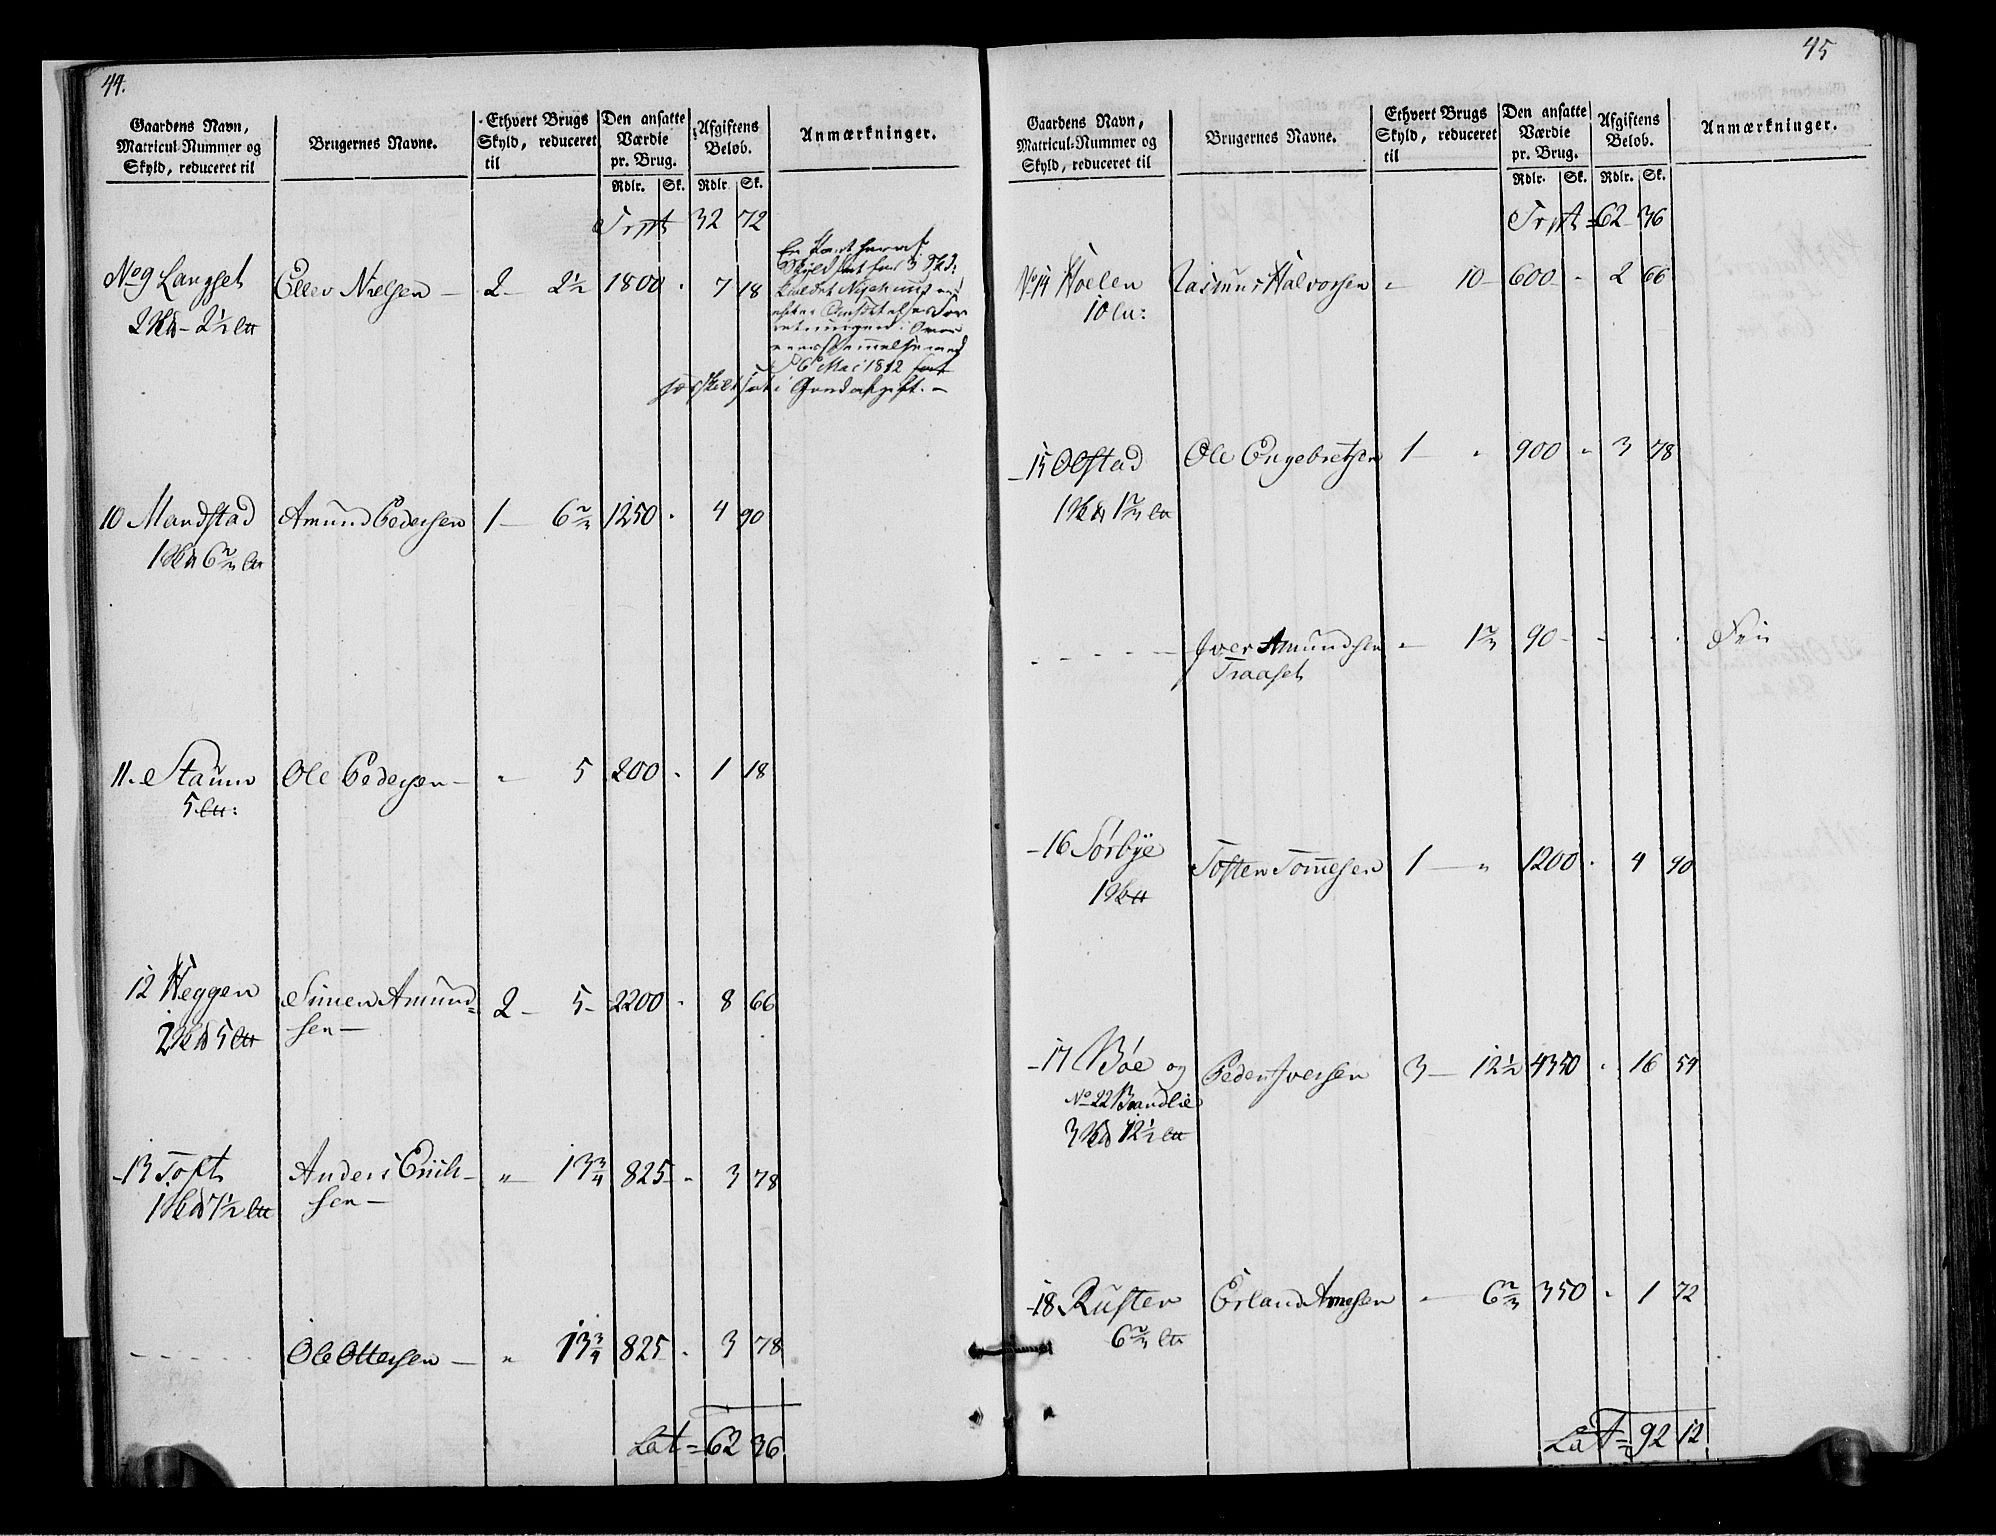 44.
Gaardens Navn,
Matricul-Nummer og
Skyld, reduceret til
Brugernes Navne.
Ethvert Brugs
Skyld, reduceret
til
Den ansatte
Værdie
pr. Brug.
Rdlr. Sk.
Afgiftens
Beløb.
Rdlr. Sk.
Anmærkninger.
Trpt 32 72
No 9 Langset Ellev Nielsen — 2 — 2½ 1800 " 7 18
2 — 2½
En Part heraf
Skyldsat for 3
kaldet
efter Ansættelsesfor
retningen i Over
eensstemmelse med
6 Mai 1812
særskilt sat i Grundafgift. —
10 Mandstad Amund Pedersen 1 — 6⅔ 1250 " 4 90
1 6⅔
11. Staum Ole Pedersen — " 5 200 " 1 18
5
12 Heggen Simen Amund= 2 — 5 — 2200 " 8 66
2 5 sen —
13 Toft Anders Erich- " — 13¾ 825 " 3 78
1 7½ sen —
- - - - - Ole Ottersen — " 13¾ 825 " 3 78
Lat = 62 36
45
Gaardens Navn,
Matricul-Nummer og
Skyld, reduceret til
Brugernes Navne.
Ethvert Brugs
Skyld, reduceret
til
Den ansatte
Værdie
pr. Brug.
Rdlr. Sk.
Afgiftens
Beløb.
Rdlr. Sk.
Anmærkninger.
Trpt = 62 36
No 14 Hoelen Rasmus Halvorsen " 10 — 600 " 2 66
10
15 Olstad Ole Engebretsen 1 — " 900 " 3 78
1 1⅔
- - - - - Iver Amundsen " — 1⅔ 90 - - . Frie
Traaset
16 Sørbye Tosten Tommesen 1 — " 1200 " 4 90
1
17 Bøe og Peder Iversen 3 — 12½ 4350 " 16 54
No 22 Brandlie
3 12½
18 Rusten Erland Arnesen " — 6⅔ 350 " 1 72
6⅔
Lat = 92 12